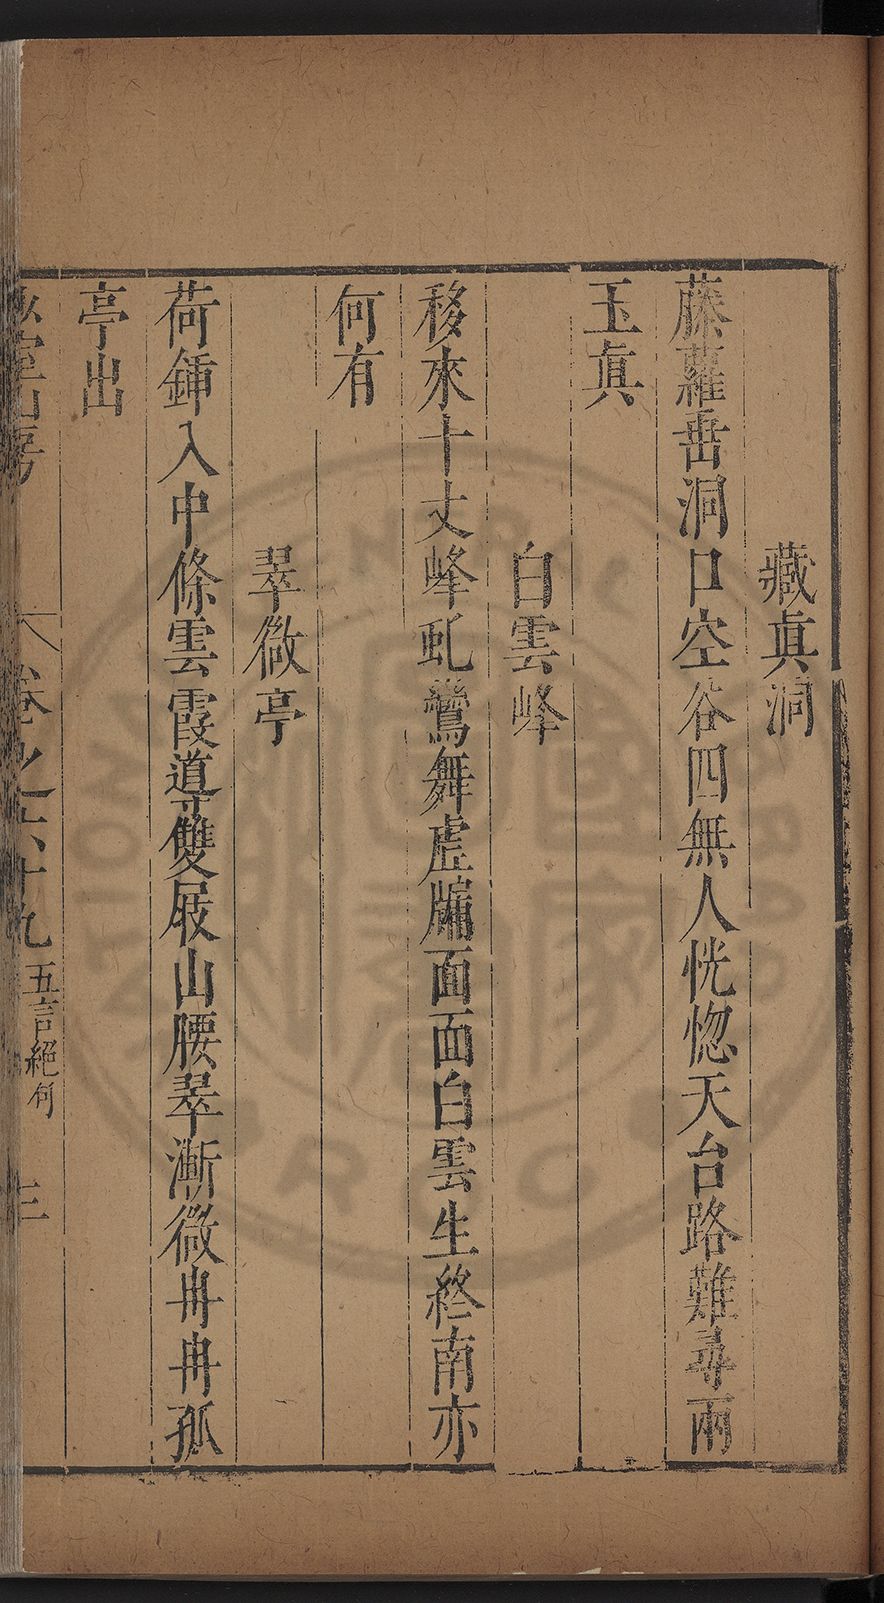 藏眞洞
藤蘿垂洞口空谷四無人恍惚天台路難尋兩
玉眞
白雲峰
移來十丈峰虬鸞舞虛牖面面白雲生終南亦
何有
翠微亭
荷鍤入中條雲霞道雙屐山腰翠漸微冉冉孤
亭出
室山房
卷之六十九 五言絕句 三